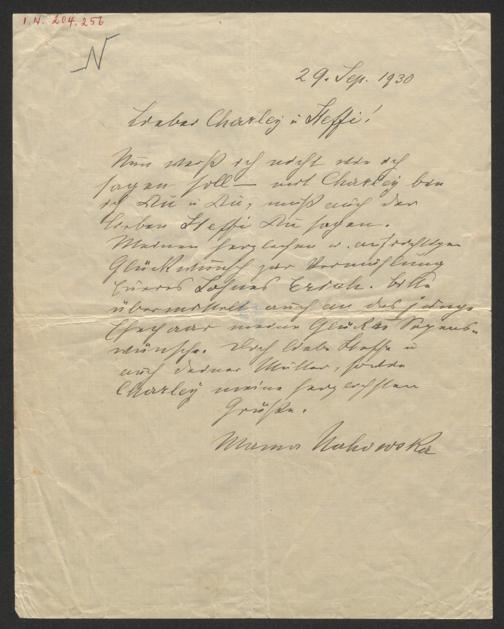 I.N. 204.256
N
29. Sep. 1930
Lieber Charley u Steffi!
Nun weiß ich nicht wie ich
sagen soll — mit Charley bin
ich Du u Du, muß auch der
lieben Steffi Du sagen.
Meinen herzlichen u. aufrichtigen
Glückwunsch zur Vermählung
Eueres Sohnes Erich. bitte
übermittelt auch an das junge
Ehepaar meine Glücks Segens-
wünsche. Dich liebe Steffi u
auch Deiner Mutter, sowie
Charley meine herzlichsten
Grüße.